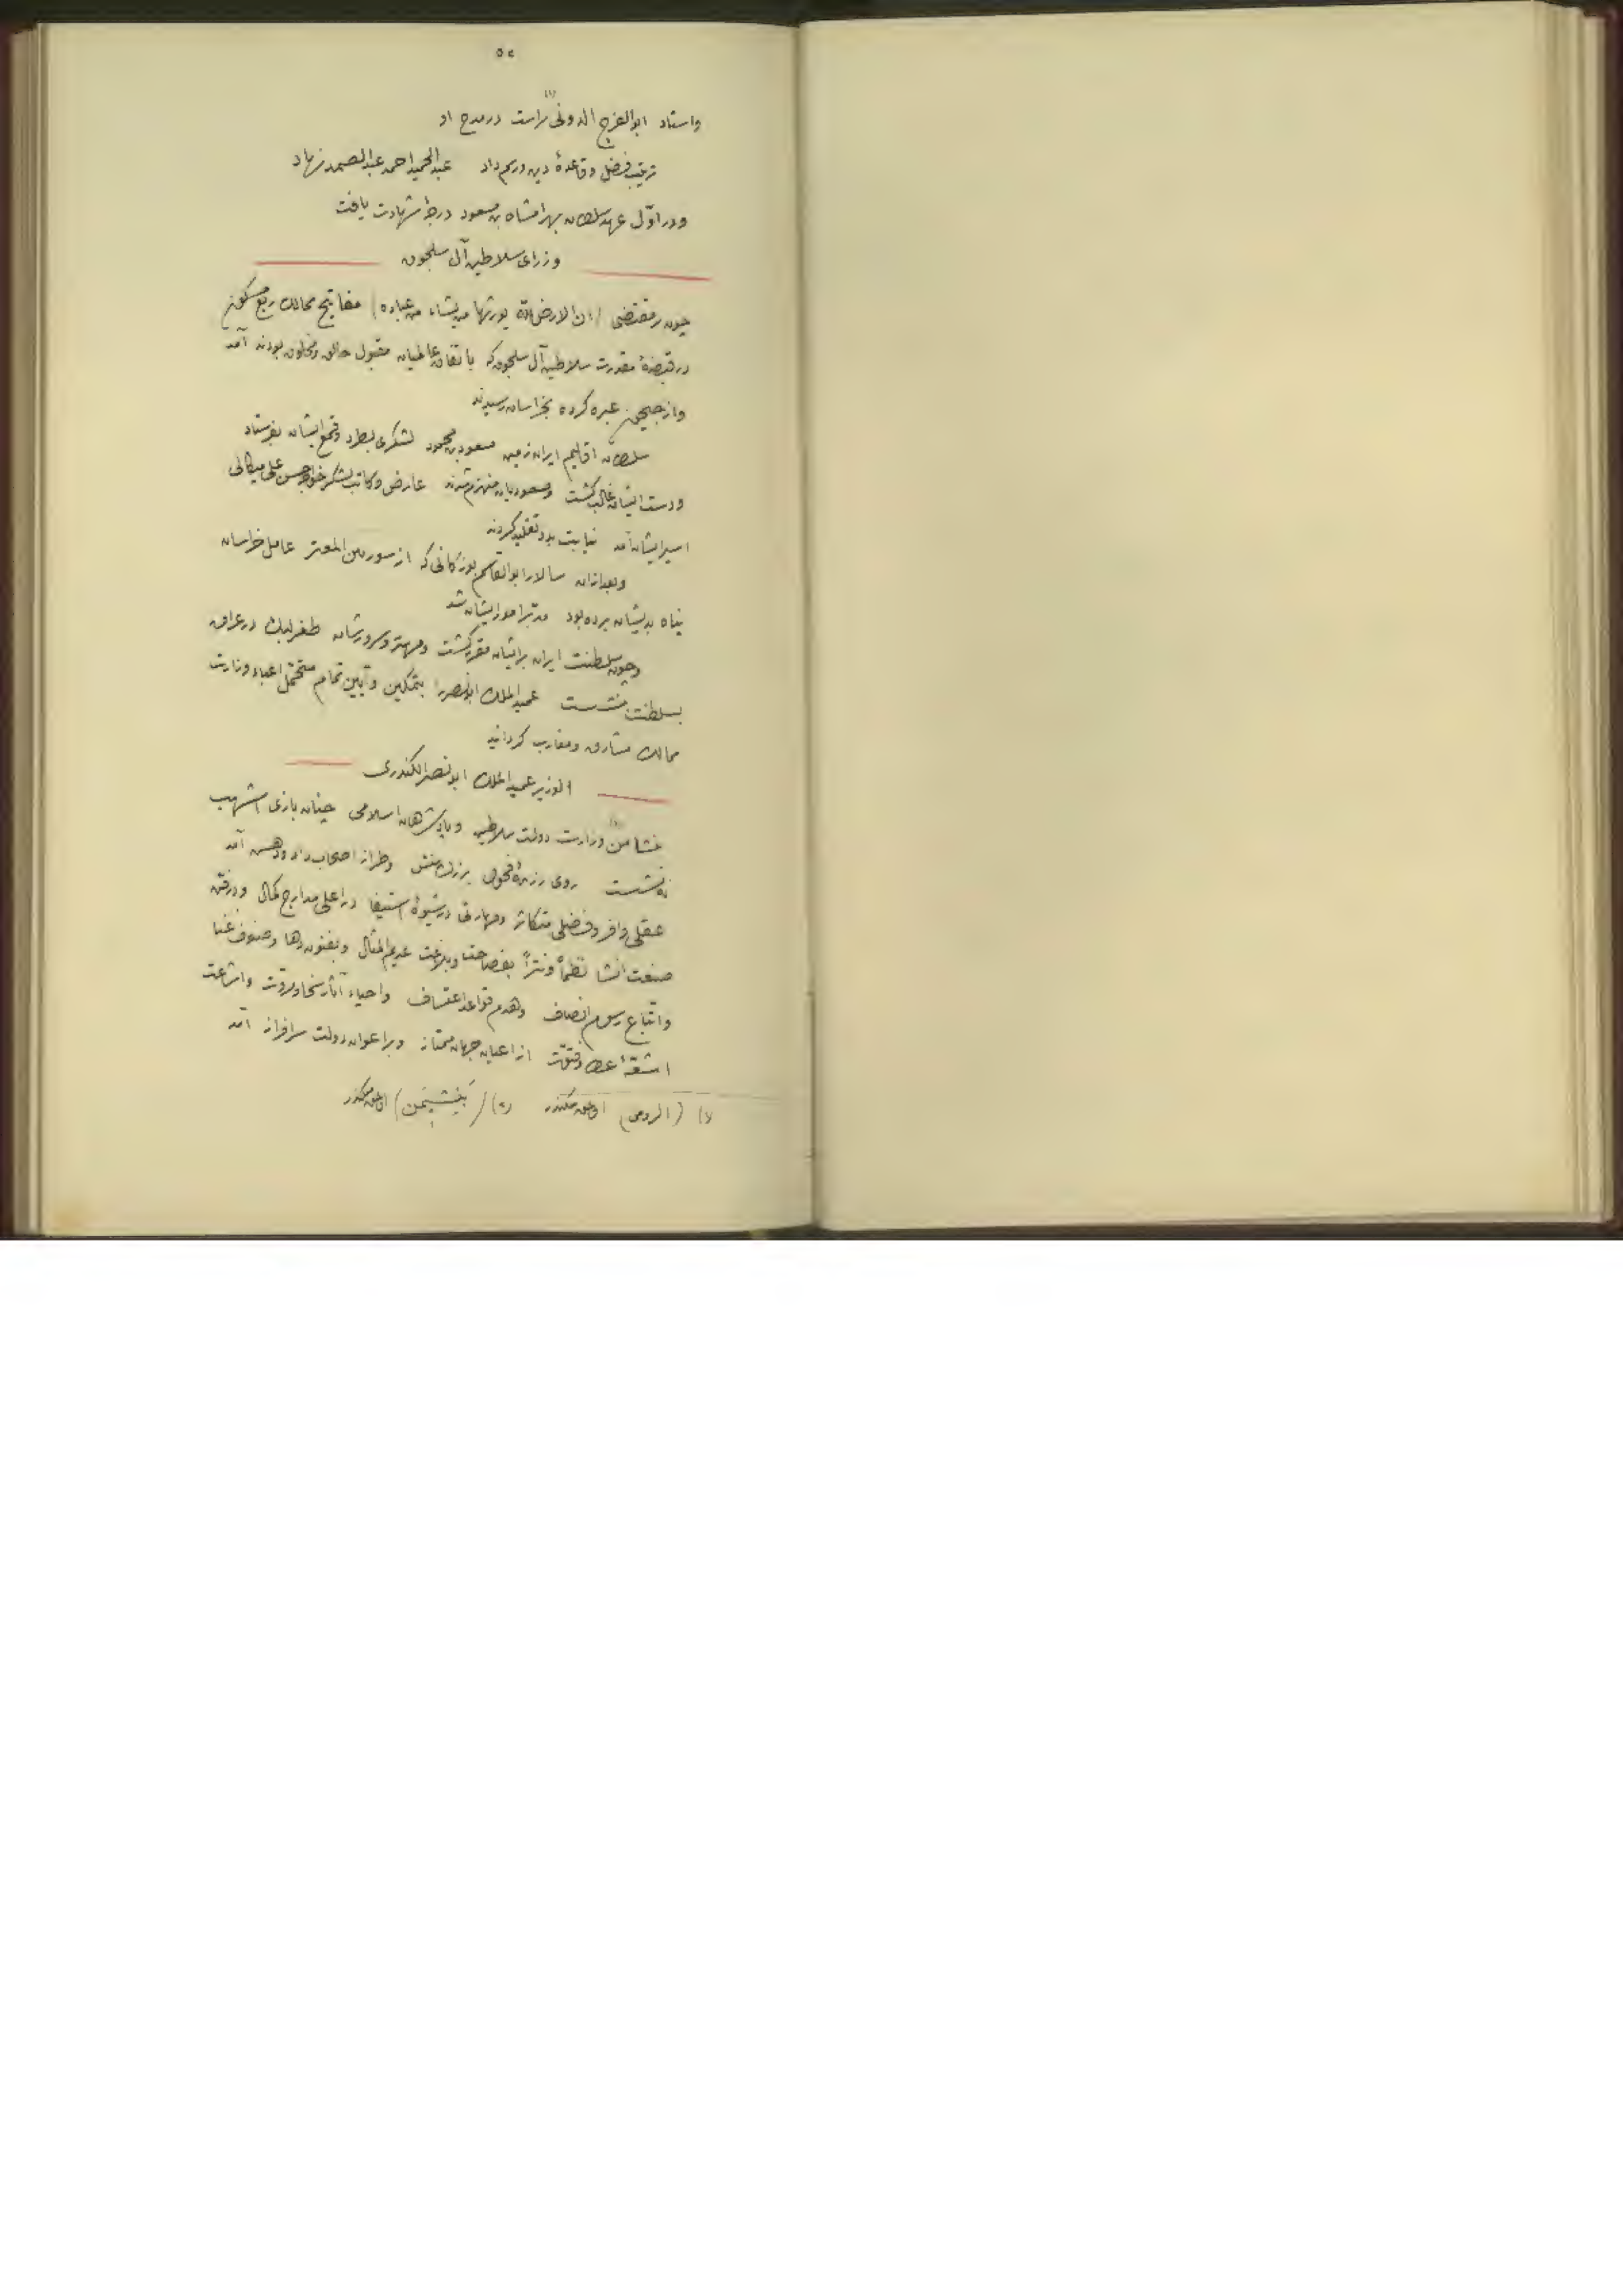 ٥٤
(١)
واستاد ابوالفرج الدونى راست در مدح او
ترتيب فضل وقاعدهٔ دين ورسم داد عبدالحميد احمد عبدالصمد نهاد
ودر اوّل عهد سلطان بهرامشاه بن مسعود درجهٔ شهادت يافت
وزراى سلاطين آل سلجوق
چون بر مقتضى (ان الارض لله يورثها من يشاء من عباده) مفاتيح ممالك ربع مسكون
در قبضهٔ مقدرت سلاطين آل سلجوق كه باتفاق عالميان مقبول خالق ومخلوق بودند آمد
واز جيحون عبره كرده بخراسان رسيدند
سلطان اقاليم ايران زمين مسعود بن محمود لشكرى بطرد وقمع ايشان بفرستاد
ودست ايشان غالب گشت ومسعوديان منهزم شدند عارض وكاتب لشكر خواجه حسن على ميكالى
اسير ايشان آمد نيابت بدو تقليد كردند
وبعد از آن سالار ابوالقاسم بوزگانى كه از سورى بن المعتز عامل خراسان
پناه بديشان برده بود مدبّر امور ايشان شد
وچون سلطنت ايران بر ايشان مقرر گشت ومهتر وسرورشان طغرلبك در عراق
بسلطنت بنشست عميدالملك ابونصر را بتمكين وآيين تمام متحمّل اعباء وزارت
ممالك مشارق ومغارب گردانيد
الوزير عميدالملك ابونصر الكندرى
(٢)
منشا من وزارت دولت سلاطين وپادشاهان اسلامى چنان بازى اشهب
نه نشست روى رزمهٔ فحول بزرگ منش وطراز اصحاب داد ودهش آمد
عقلى وافر وفضلى متكاثر ومهارتى در شيوهٔ استيفا در اعلى مدارج كمال ودر فن
صنعت انشا نظماً ونثراً بفصاحت وبلاغت عديم المثال وبفنون دها وصنوف غنا
واتباع رسوم انصاف وهدم قواعد اعتساف واحياء آثار سخا ومروّت واشاعت
اشعّهٔ عطا وفتوّت از اعيان جهان ممتاز وبر اعوان دولت سرافراز آمد
(١) (الرومى) (٢)